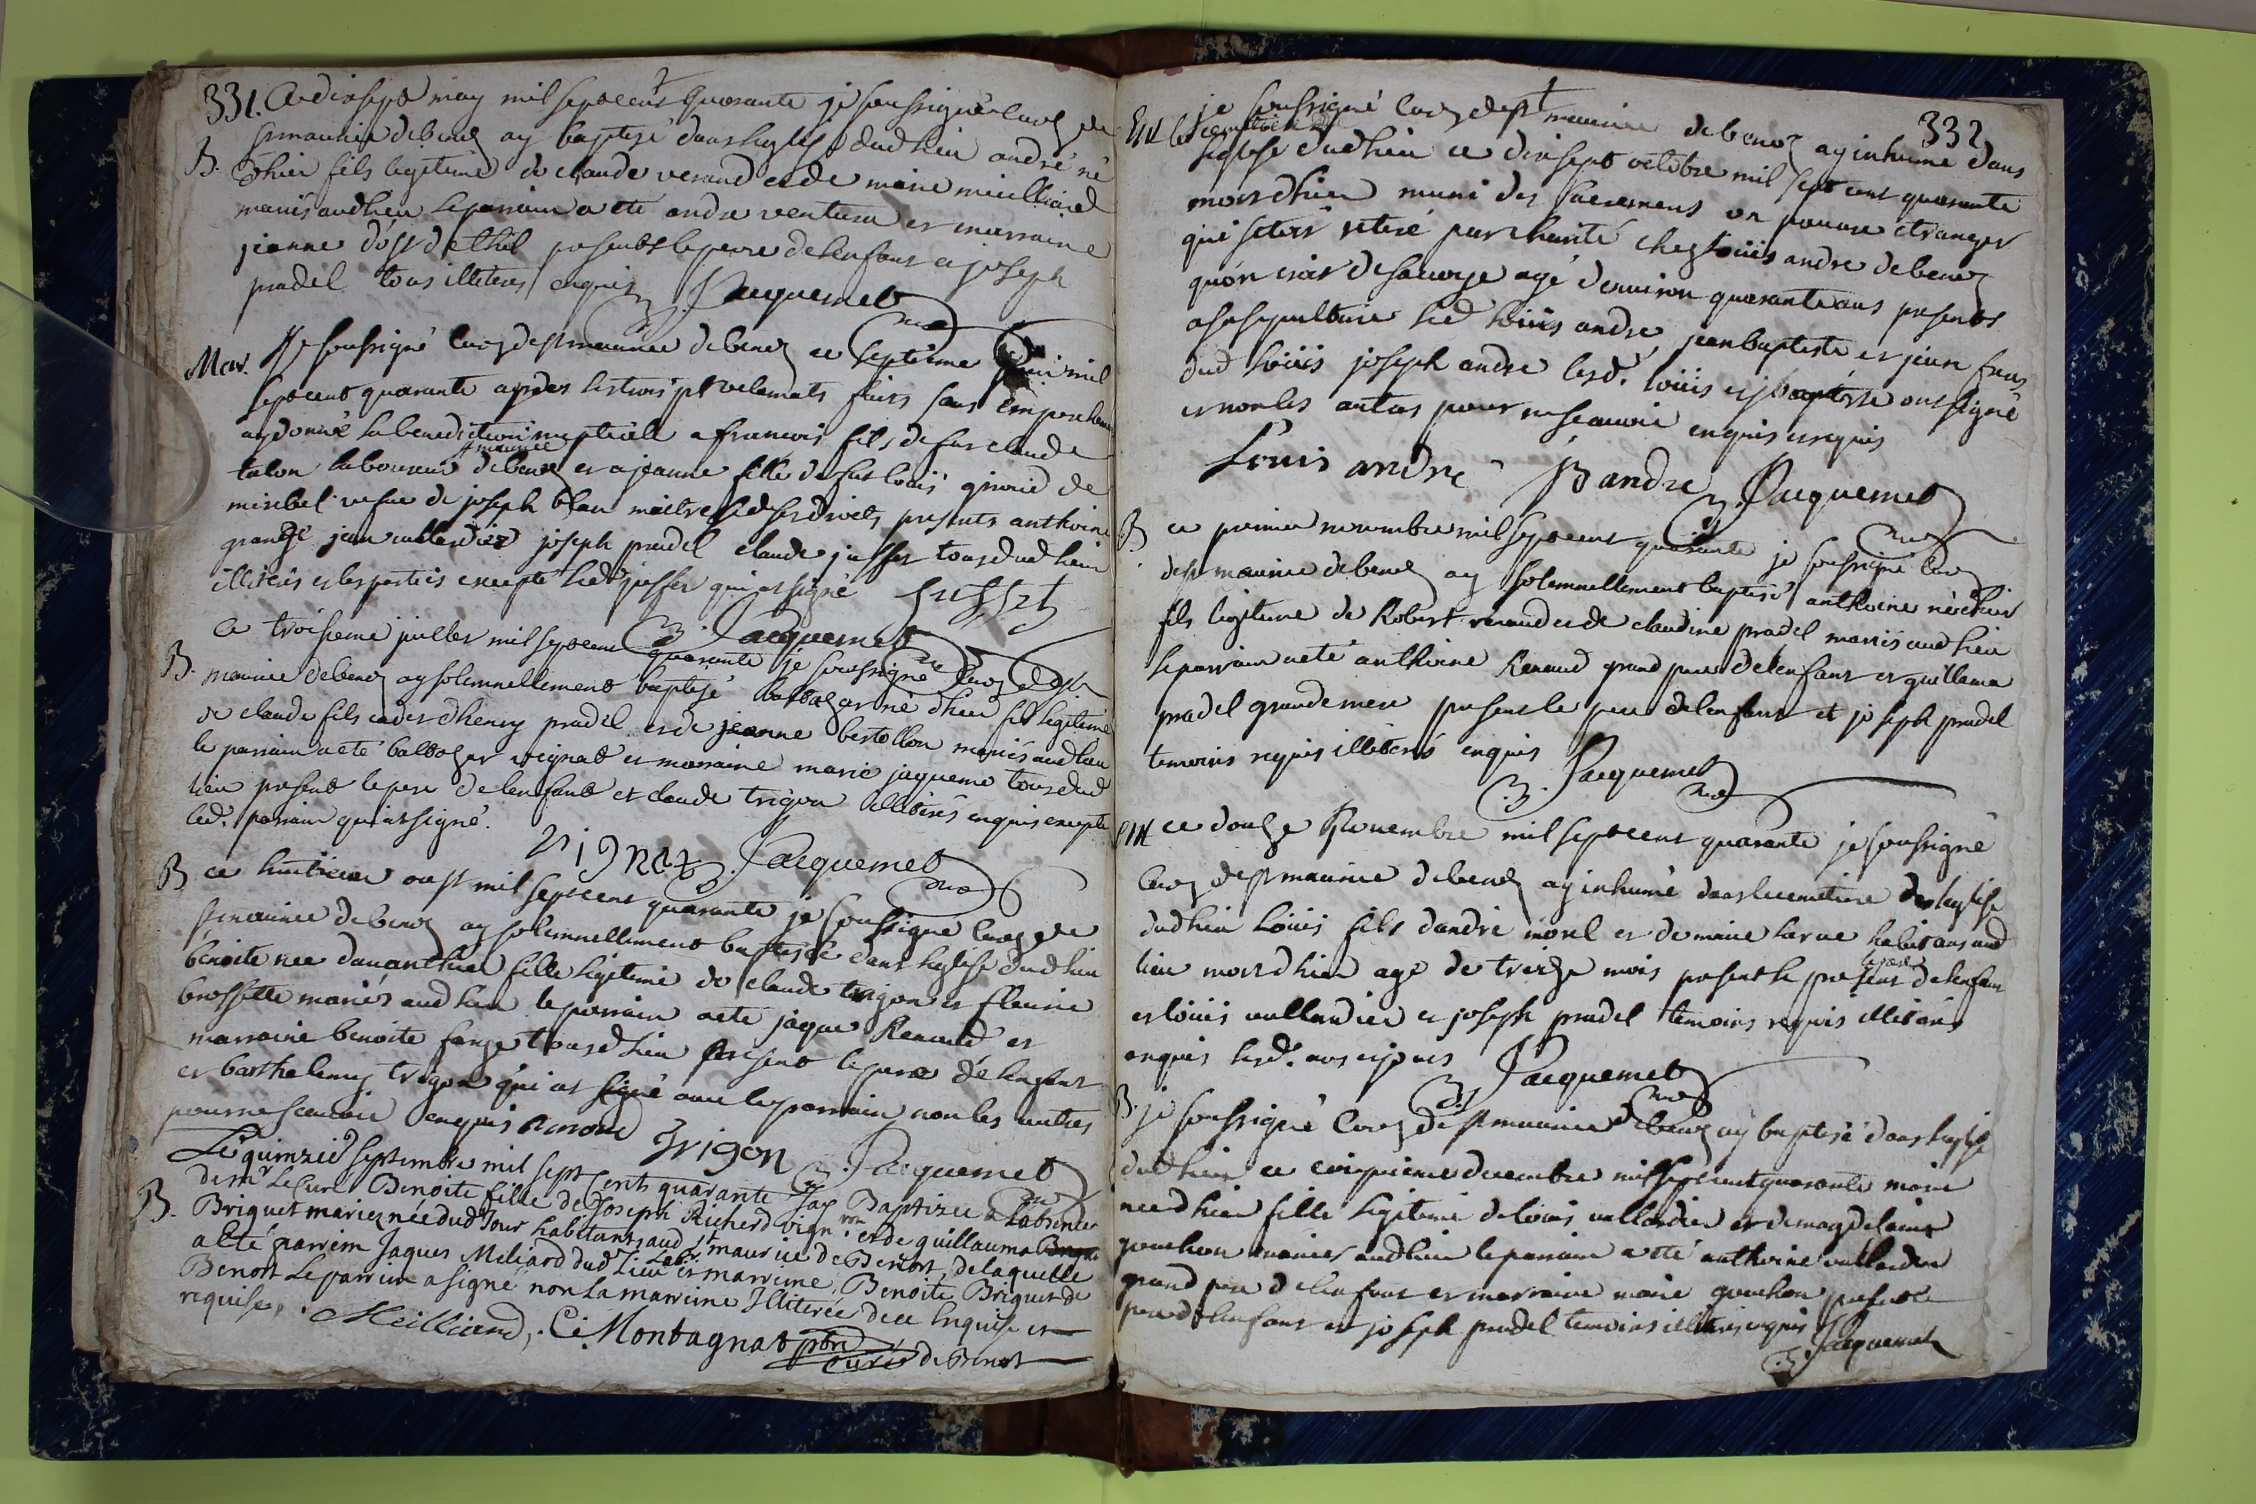 331. Ce dixsept may mil septcens quarante je soussigné curé de
B. st maurice de benoz ay baptisé dans leglise dud lieu andré né
hier fils legitime de claude renaud et de marie meilliard
mariés aud lieu le parrain a été andre ventura et marraine
jeanne presents le pere de lenfant et joseph
pradel tous illiteres enquis Jacquemet
Mar. Je soussigné curé de st maurice de benoz ce septieme juin mil
septcent quarante apres les trois proclamats faits sans empechem
ay donné la benediction nuptiale a francois fils de fut claude
talon laboureur de benoz et a jeanne fille de fut louis girard de
st maurice
miribel vefue de joseph blan maitresse de ses droits presents anthoine
grange jean vallandier joseph pradel claude jusset tous dud lieu
illiterés et les parties excepté led jusset qui at signé jusset
Jacquemet
B. Ce troisieme juillet mil septcent quarante je soussigné curé de st
maurice de benoz ay solemnellement baptisé baltazar né dhier fils legitime
de claude fils cadet dhenry pradel et de jeanne bertollon mariés aud lieu
le parrain a eté baltazar vignat et marraine marie jaqueme tous dud
lieu present le pere de lenfant et claude trigon illiterés enquis excepté
led. parrain qui at signé.
Vignat Jacquemet
B ce huitieme oust mil septcent quarante je soussigné curé de
st maurice de benoz ay solemnellement baptisé dans leglise dud lieu
benoite née dauanthier fille legitime de claude trigon et fleurie
brossette mariés aud lieu le parrain a eté jaque Renaud et
marraine benoite farge tous dud lieu present le pere de lenfant
et barthelemy trigon qui at signé auec le parrain non les autres
pour ne scauoir enquis Renaud Trigon Jacquemet
Le quinzie septembre mil sept cents quarante Jay Baptizée a Labsence
B. de mr Le Curé Benoite fille de Joseph Richerd vign.ron et de guillauma
Briquet mariez née dud Jour habitants aud st maurice de Benost, de laquelle
a eté parrein Jaques Meliard dud Lieu et marreine Benoite Briquet de
Benost Le parrein a signé non La marreine Illiterée de ce Enquise et
requise, Meilliard, C. Montagnat ptre
curé de Benost
332
Ent je soussigné curé de st maurice de benoz ay inhumé dans
le cemetiere de
leglise dud lieu ce dixsept octobre mil sept cent quarante
mort dhier muni des sacremens un pauure etranger
qui setoit retiré par charité chez louis andre de benoz
quon croit de sauoye agé denuiron quarante ans presents
a sa sepulture led louis andre, jean baptiste et jean freres
dud louis joseph andre lesd. louis et j baptiste ont signé
et non les autres pour ne scauoir enquis et requis
Louis andre JB andre Jacquemet
B. ce premier nouembre mil septcent quarante je soussigné curé
de st maurice de benoz ay solemnellement baptisé anthoine né dhier
fils legitime de Robert renaud et de claudine pradel mariés aud lieu
le parrain a eté anthoine Renaud grand pere de lenfant et guillama
pradel grande mere present le pere de lenfant et joseph pradel
temoins requis illiterés enquis Jacquemet
Ent ce douze Nouembre mil septcent quarante je soussigné
curé de st maurice de benoz ay inhumé dans le cemetiere de leglise
dud lieu louis fils dandré morel et de marie larue habitans aud
lieu mort dhier agé de treize mois present le pere de lenfant
et louis vallandier et joseph pradel temoins requis illiterés
enquis lesd. an et jour Jacquemet
B. je soussigné curé de st maurice de benoz ay baptisé dans leglise
dud lieu ce cinquieme decembre mil septcent quarante marie
née dhier fille legitime de louis vallandier et de magdelaine
gonchon mariés aud lieu le parrain a eté anthoine vallandier
grand pere de lenfant et marraine marie gonchon present le
pere de lenfant et joseph pradel temoins illiterés enquis Jacquemet